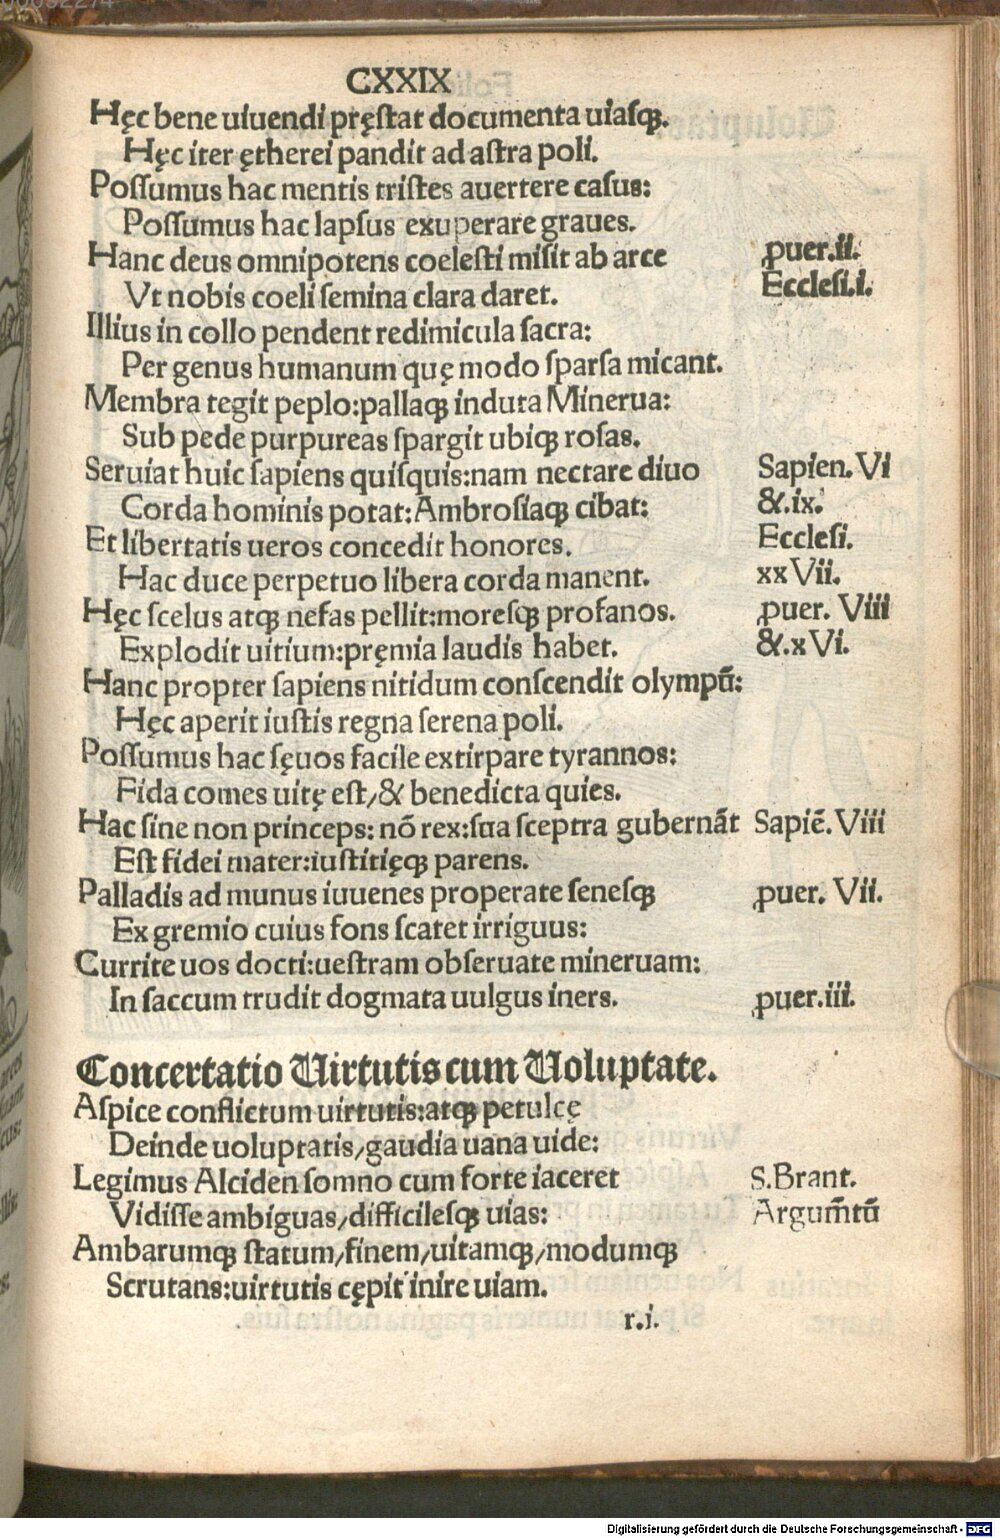 CXXIX
Hęc bene uiuendi pręstat documenta uiasqꝫ.
Hęc iter ętherei pandit ad astra poli.
Possumus hac mentis tristes auertere casus:
Possumus hac lapsus exuperare graues.
Hanc deus omnipotens coelesti misit ab arce ꝓuer.ii.
Vt nobis coeli semina clara daret. Ecclesi.i.
Illius in collo pendent redimicula sacra:
Per genus humanum quę modo sparsa micant.
Membra tegit peplo:pallaqꝫ induta Minerua:
Sub pede purpureas spargit ubiqꝫ rosas.
Seruiat huic sapiens quisquis:nam nectare diuo Sapien.Vi
Corda hominis potat:Ambrosiaqꝫ cibat: &.ix.
Et libertatis ueros concedit honores. Ecclesi.
Hac duce perpetuo libera corda manent. xxVii.
Hęc scelus atqꝫ nefas pellit:moresqꝫ profanos. ꝓuer. Viii
Explodit uitium:pręmia laudis habet. &.xVi.
Hanc propter sapiens nitidum conscendit olympū:
Hęc aperit iustis regna serena poli.
Possumus hac sęuos facile extirpare tyrannos:
Fida comes uitę est/& benedicta quies.
Hac sine non princeps: nō rex:sua sceptra gubernāt Sapiē.Viii
Est fidei mater:iustitięqꝫ parens.
Palladis ad munus iuuenes properate senesqꝫ ꝓuer. Vii.
Ex gremio cuius fons scatet irriguus:
Currite uos docti:uestram obseruate mineruam:
In saccum trudit dogmata uulgus iners. ꝓuer.iii.
Concertatio Uirtutis cum Uoluptate.
Aspice conflictum uirtutis:atqꝫ petulcę
Deinde uoluptatis/gaudia uana uide:
Legimus Alciden somno cum forte iaceret S.Brant.
Vidisse ambiguas/difficilesqꝫ uias: Argum̄tū
Ambarumqꝫ statum/finem/uitamqꝫ/modumqꝫ
Scrutans:uirtutis cępit inire uiam.
r.i.
Digitalisierung gefördert durch die Deutsche Forschungsgemeinschaft - DFG